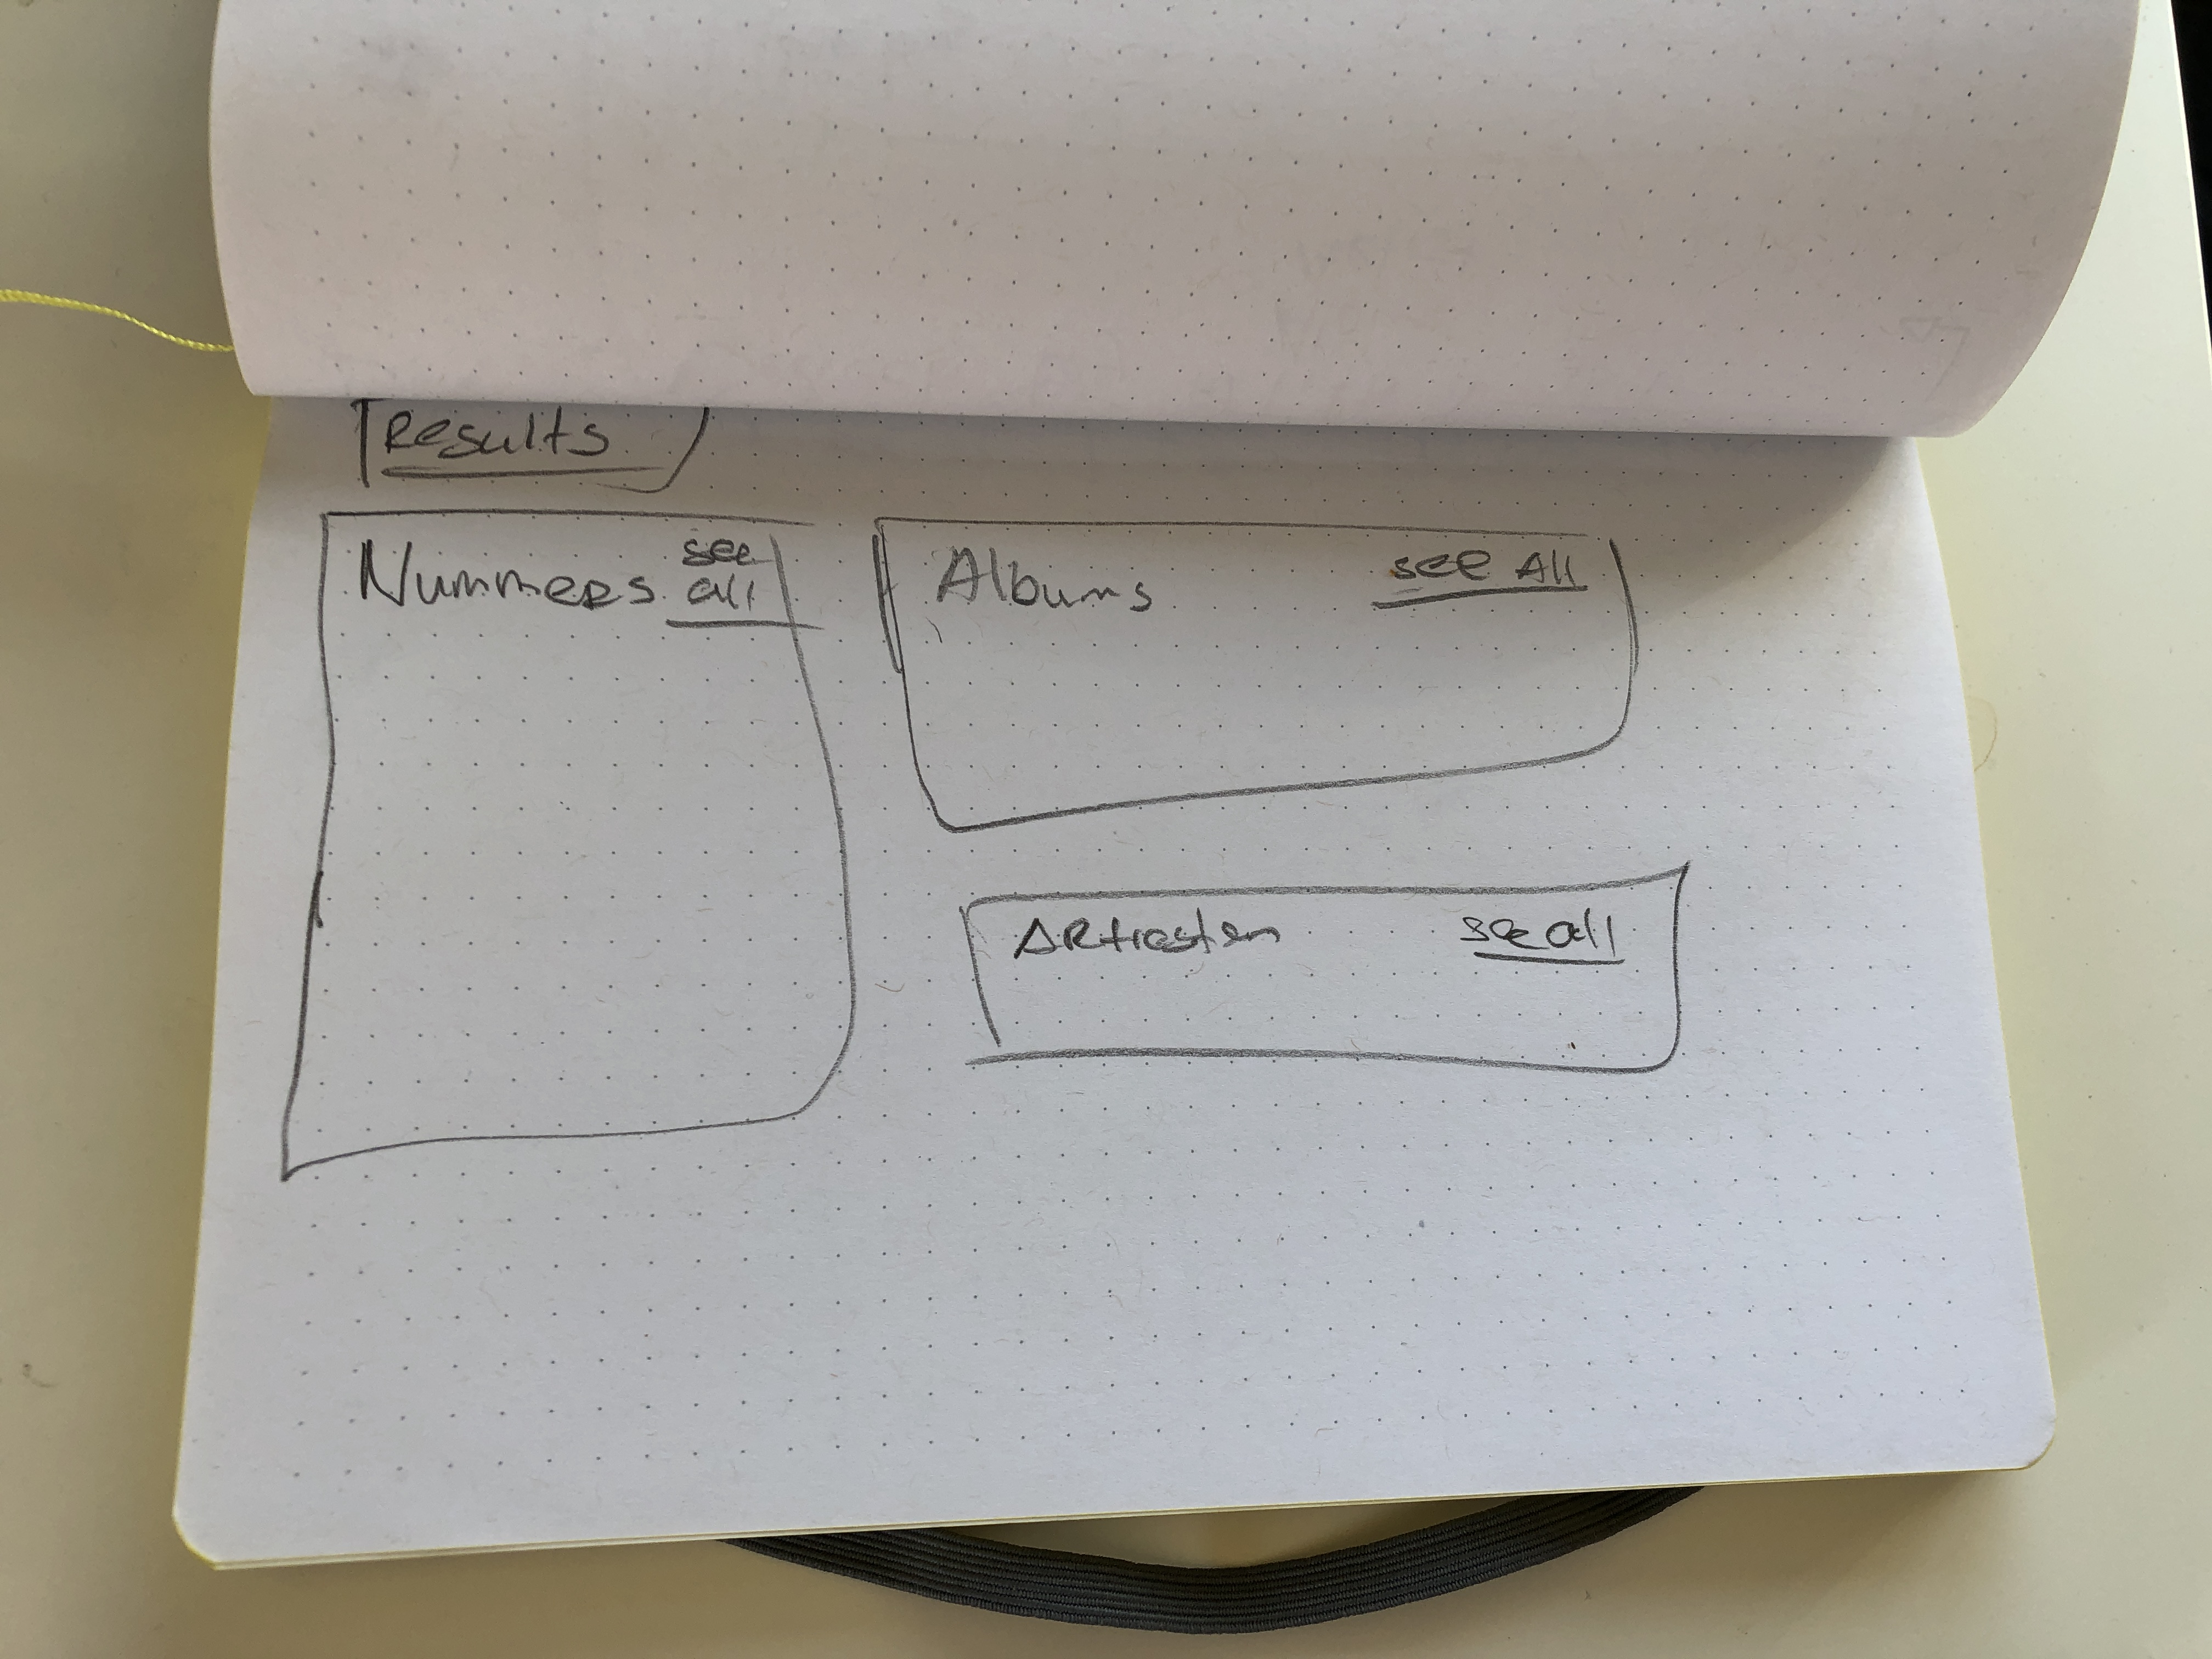 Results
Nummers see all
Albums see All
ARtiesten see all